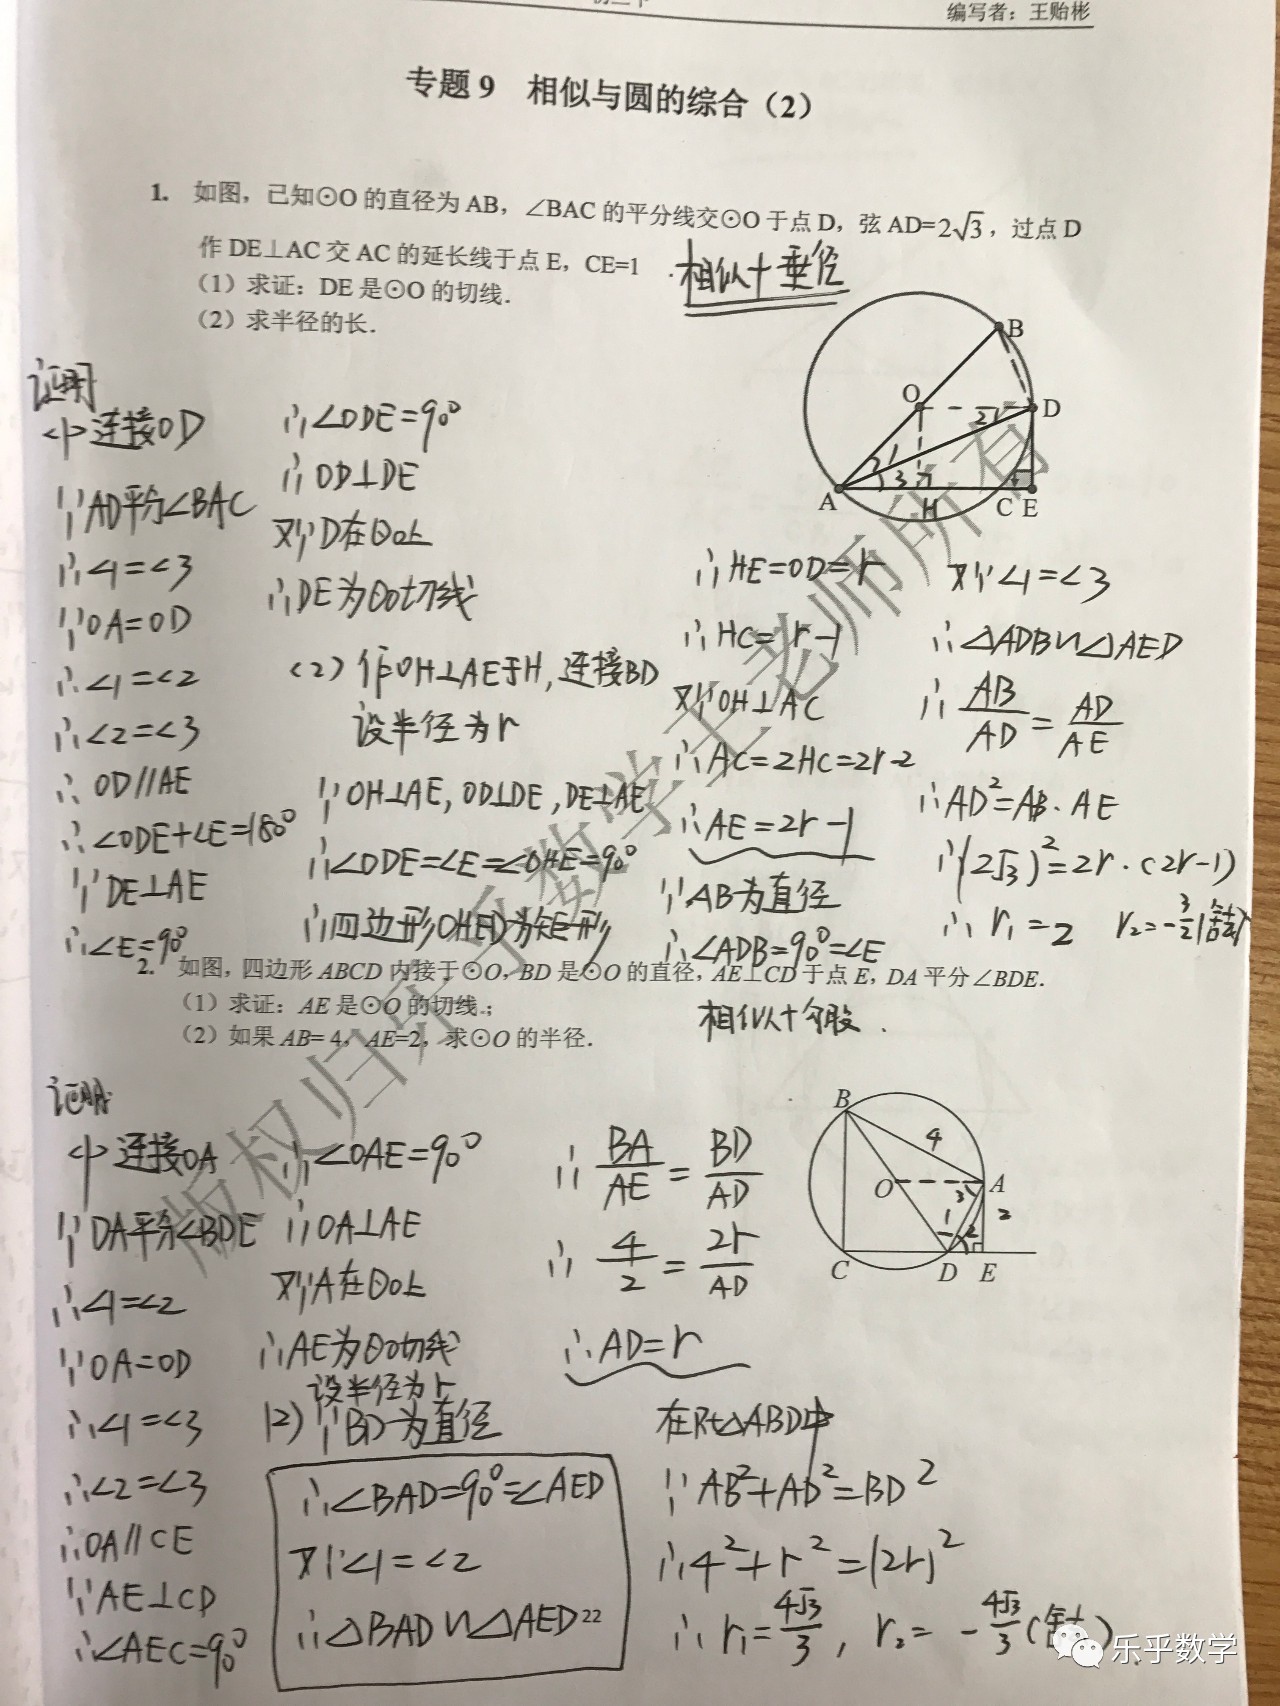 编写者：王贻彬
专题 9 相似与圆的综合（2）
1. 如图，已知⊙O 的直径为 AB，∠BAC 的平分线交⊙O 于点 D，弦 AD=2√3，过点 D
作 DE⊥AC 交 AC 的延长线于点 E，CE=1
相似+垂径
（1）求证：DE 是⊙O 的切线.
（2）求半径的长.
B
O
D
2
1
3
A
H
C E
证明
<1>连接OD
∵AD平分∠BAC
∴∠1=∠3
∵OA=OD
∴∠1=∠2
∴∠2=∠3
∴OD//AE
∴∠ODE+∠E=180°
∵DE⊥AE
∴∠E=90°
∴∠ODE=90°
∴OD⊥DE
又∵D在⊙O上
∴DE为⊙O切线
(2) 作OH⊥AE于H,连接BD
设半径为r
∵OH⊥AE,OD⊥DE,DE⊥AE
∴∠ODE=∠E=∠OHE=90°
∴四边形OHED为矩形
∴HE=OD=r
∴HC=r-1
又∵OH⊥AC
∴AC=2HC=2r-2
∴AE=2r-1
∵AB为直径
∴∠ADB=90°=∠E
又∵∠1=∠3
∴△ADB∽△AED
∴AB/AD=AD/AE
∴AD²=AB·AE
∴(2√3)²=2r·(2r-1)
∴r₁=2 r₂=-3/2(舍去)
2. 如图，四边形 ABCD 内接于⊙O，BD 是⊙O 的直径，AE⊥CD 于点 E，DA 平分∠BDE.
（1）求证：AE 是⊙O 的切线；
（2）如果 AB= 4，AE=2，求⊙O 的半径.
相似+勾股.
B
4
O
A
3
2
1
2
C
D
E
证明:
<1>连接OA
∵DA平分∠BDE
∴∠1=∠2
∵OA=OD
∴∠1=∠3
∴∠2=∠3
∴OA//CE
∵AE⊥CD
∴∠AEC=90°
∴∠OAE=90°
∴OA⊥AE
又∵A在⊙O上
∴AE为⊙O切线
设半径为r
(2)∵BD为直径
∴∠BAD=90°=∠AED
又∵∠1=∠2
∴△BAD∽△AED
22
∴BA/AE=BD/AD
∴4/2=2r/AD
∴AD=r
在Rt△ABD中
∵AB²+AD²=BD²
∴4²+r²=(2r)²
∴r₁=4√3/3, r₂=-4√3/3(舍去).
版权归乐乎数学王老师所有
乐乎数学